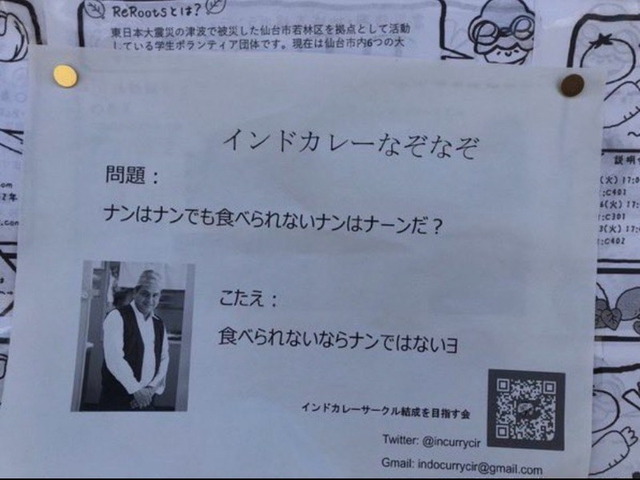 ReRootsとは?
東日本大震災の津波で被災した仙台市若林区を拠点として活動
している学生ボランティア団体です。現在は仙台市内6つの大
インドカレーなぞなぞ
問題：
ナンはナンでも食べられないナンはナーンだ？
こたえ：
食べられないならナンではないヨ
インドカレーサークル結成を目指す会
Twitter: @incurrycir
Gmail: indocurrycir@gmail.com
説明
(火) 17:0
:C401
(火) 17:0
:C301
(火) 17:0
:C402